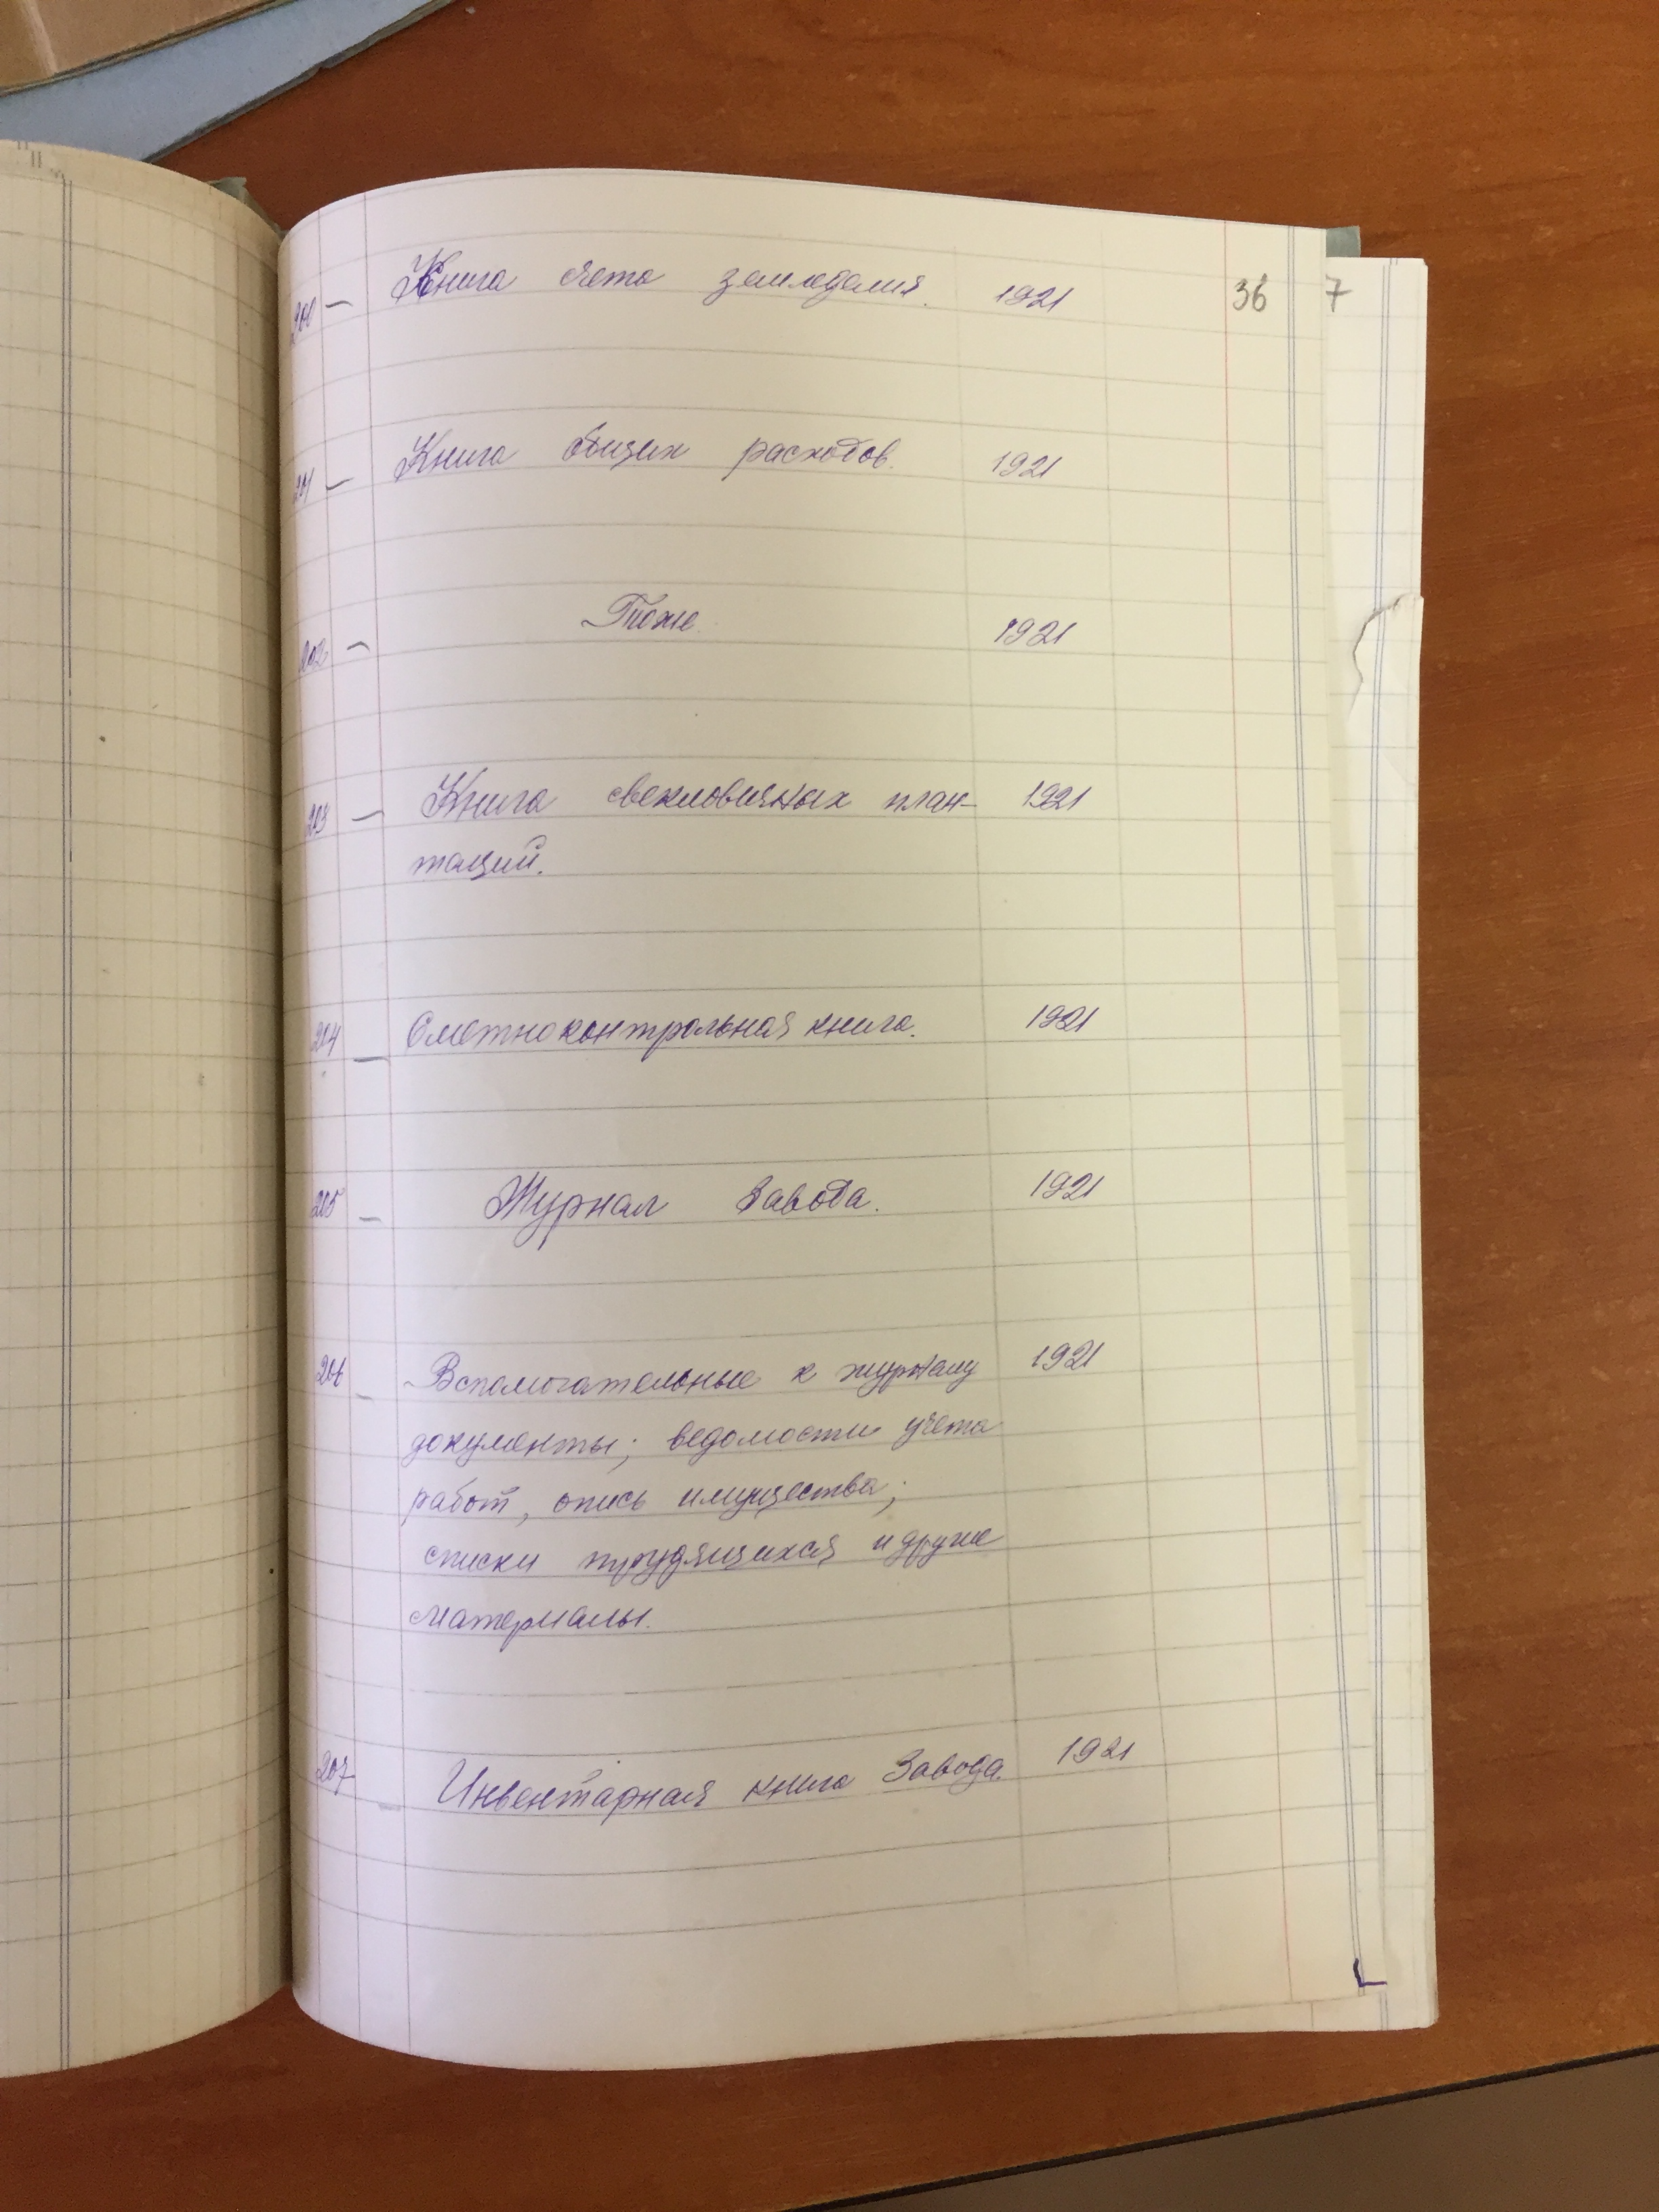 200 — Книга счета земледелия. 1921 36 7
201 — Книга общих расходов. 1921
202 — Тоже 1921
203 — Книга свекловичных план- 1921
таций.
204 — Сметно контрольная книга. 1921
205 — Журнал Завода. 1921
206 — Вспомогательные к журналу 1921
документы; ведомости учета
работ, опись имущества;
списки трудящихся и друие
материалы.
207 — Инвентарная книга Завода. 1921